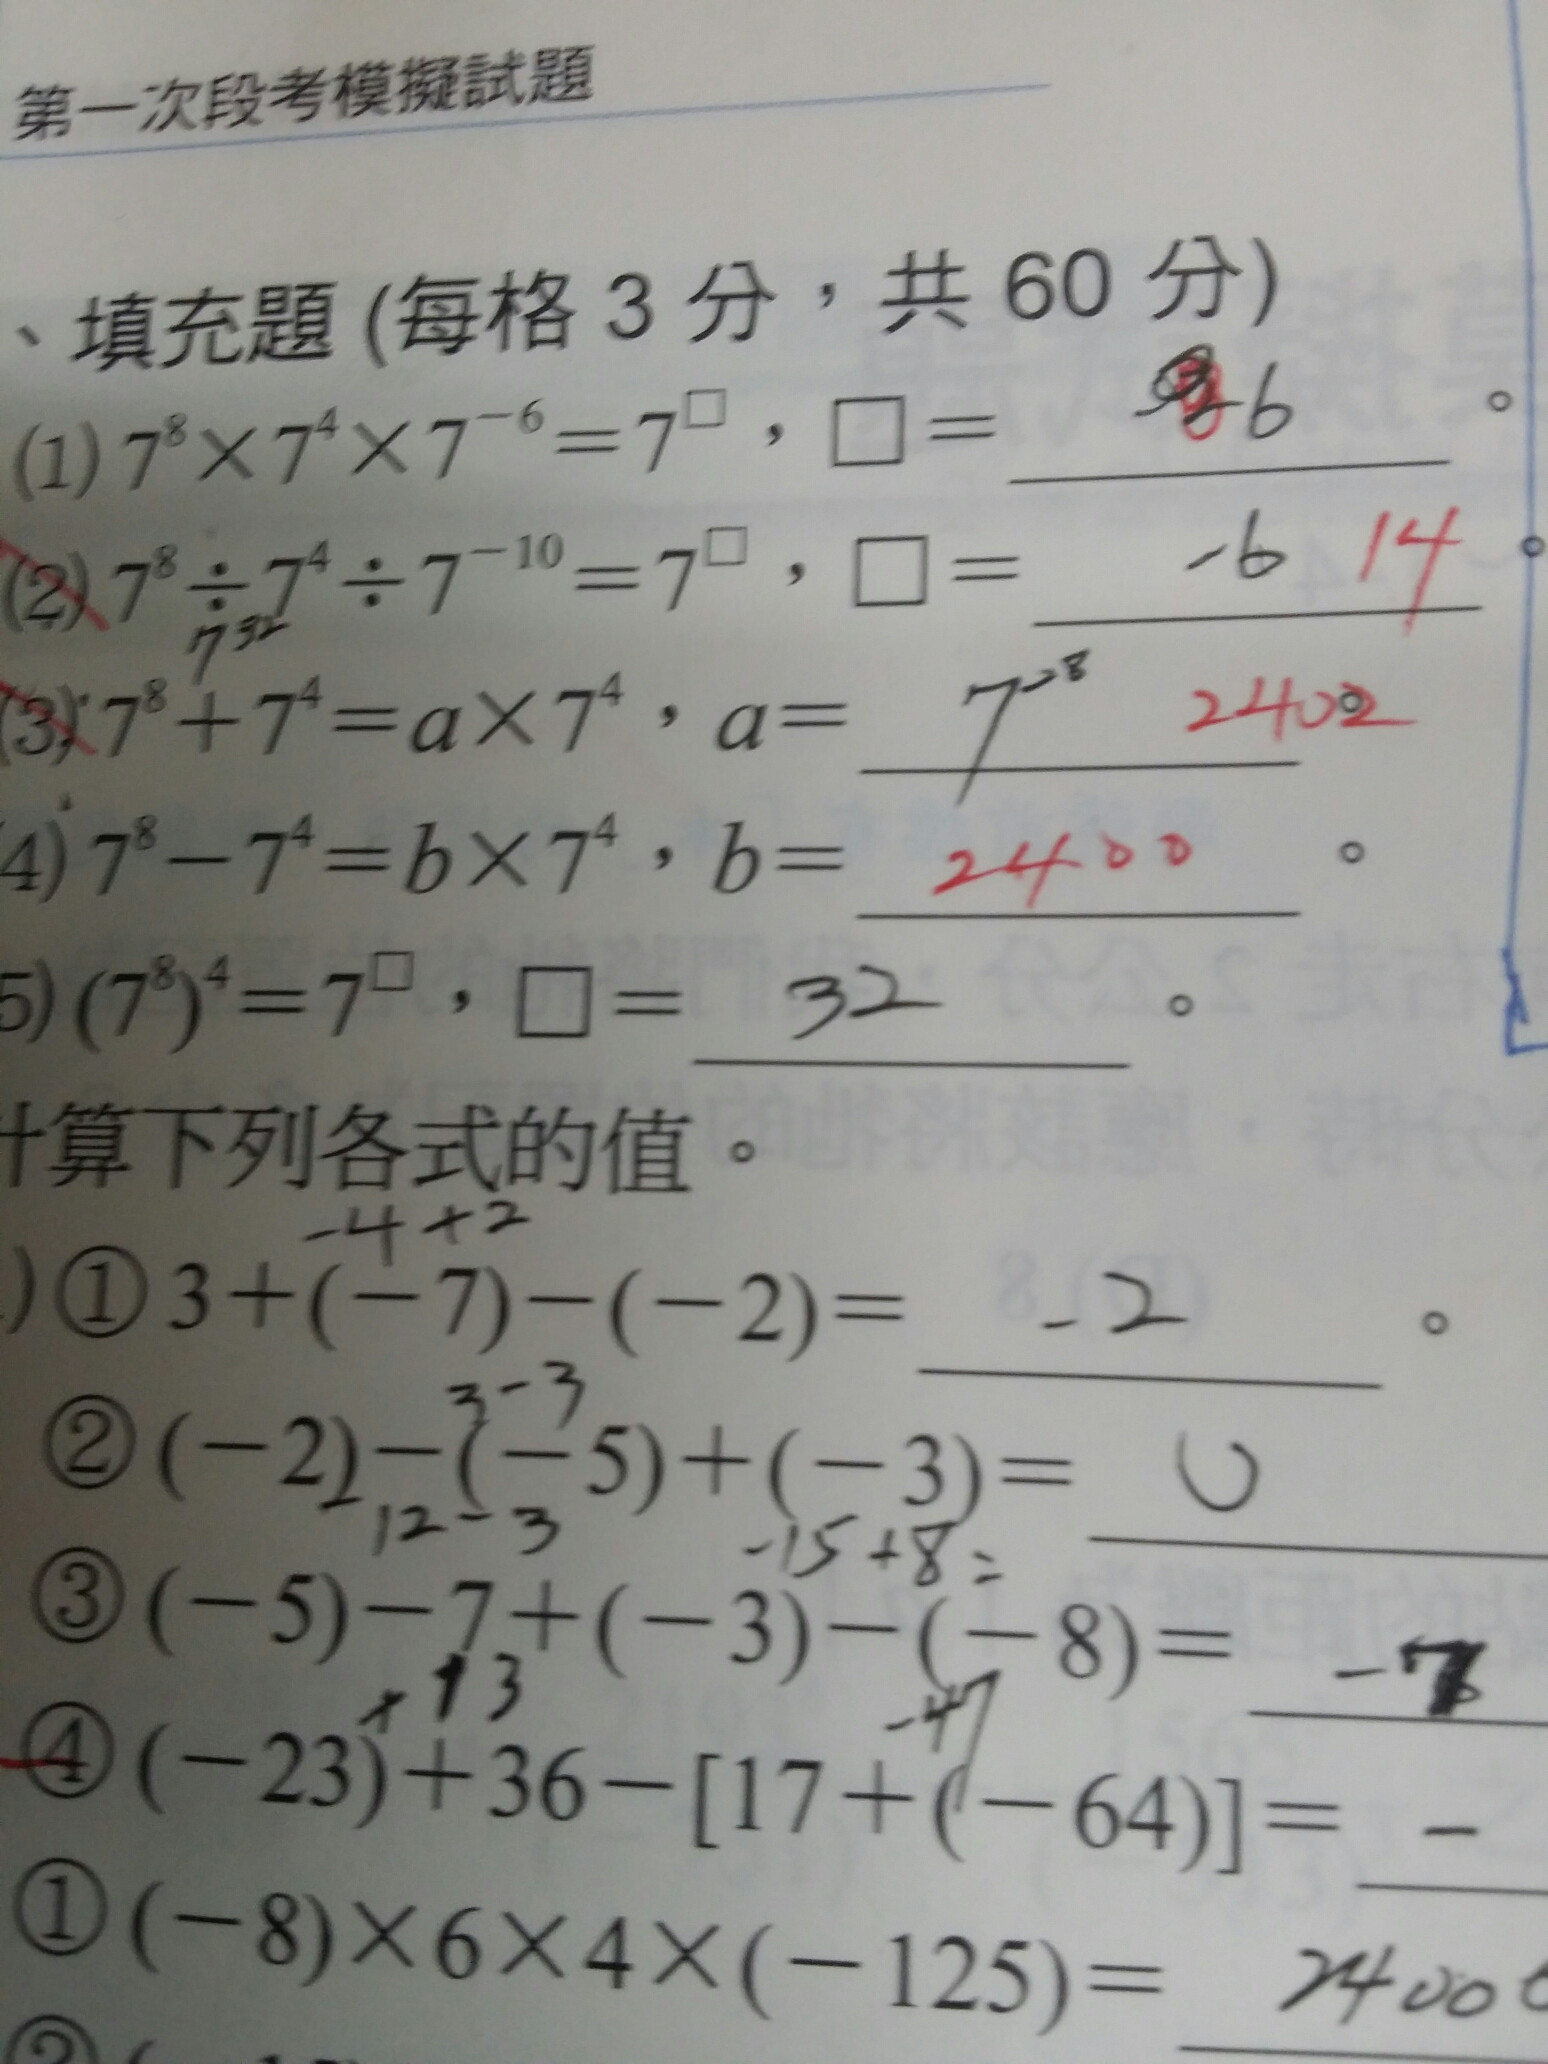 第一次段考模擬試題
、填充題 (每格 3 分，共 60 分)
(1) 7⁸×7⁴×7⁻⁶=7^□，□= 6 。
(2) 7⁸÷7⁴÷7⁻¹⁰=7^□，□= -6 14 。
7³²
(3) 7⁸+7⁴=a×7⁴，a= 7⁻²⁸ 2402 。
4) 7⁸-7⁴=b×7⁴，b= 2400 。
5) (7⁸)⁴=7^□，□= 32 。
計算下列各式的值。
-4+2
) ① 3+(-7)-(-2)= -2 。
3-3
② (-2)-(-5)+(-3)= 0
-12-3 -15+8=
③ (-5)-7+(-3)-(-8)= -7
+13 -47
④ (-23)+36-[17+(-64)]= -
① (-8)×6×4×(-125)= 24000